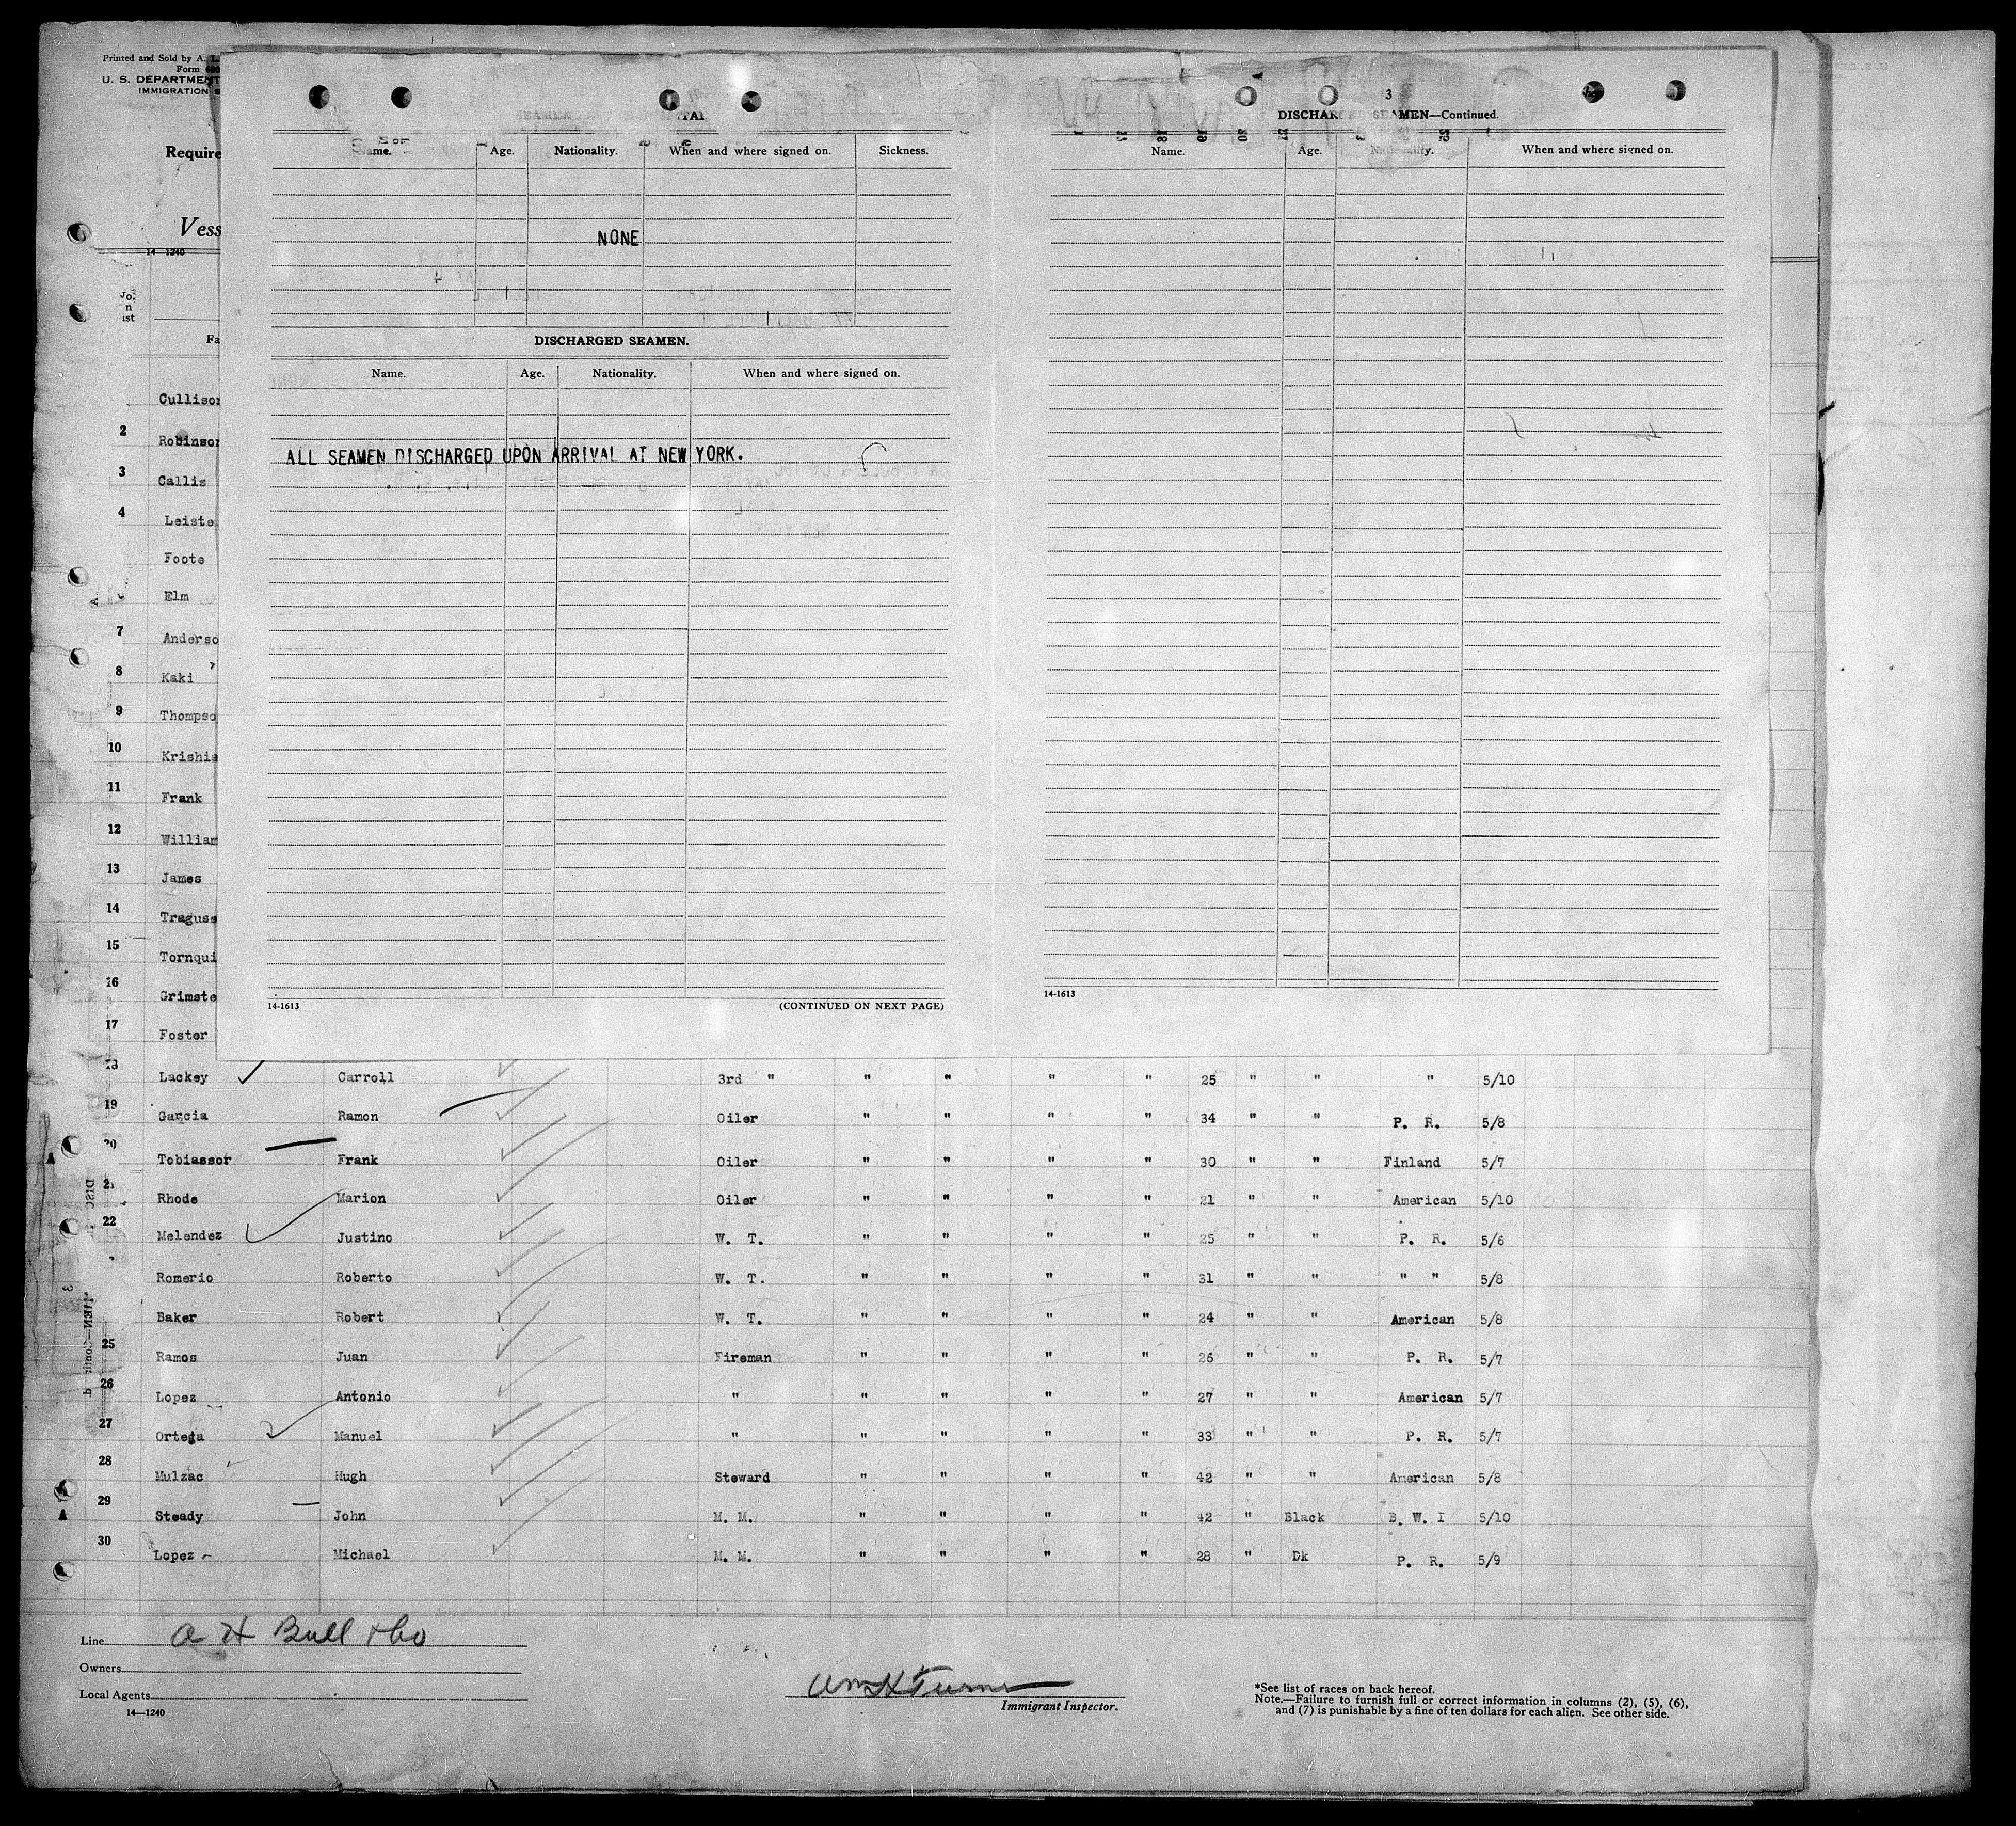 Printed and Sold by A. L.
Form
U. S. DEPARTMENT
IMMIGRATION S
Require
Vess
14—1240
Name. Age. Nationality. When and where signed on. Sickness.
NONE
DISCHARGED SEAMEN.
Name. Age. Nationality. When and where signed on.
ALL SEAMEN DISCHARGED UPON ARRIVAL AT NEW YORK.
14-1613 (CONTINUED ON NEXT PAGE)
3
DISCHARGED SEAMEN—Continued.
Name. Age. Nationality. When and where signed on.
14-1613
Fa
Cullison
2 Robinson
3 Callis
4 Leiste
Foote
Elm
7 Anderso
8 Kaki
9 Thompso
10 Krishia
11 Frank
12 William
13 James
14 Traguse
15 Tornqui
16 Grimste
17 Foster
18 Lackey Carroll 3rd " " " " " 25 " " " 5/10
19 Garcia Ramon Oiler " " " " 34 " " P. R. 5/8
20 Tobiassor Frank Oiler " " " " 30 " " Finland 5/7
21 Rhode Marion Oiler " " " " 21 " " American 5/10
22 Melendez Justino W. T. " " " " 25 " " P. R. 5/6
Romerio Roberto W. T. " " " " 31 " " " " 5/8
Baker Robert W. T. " " " " 24 " " American 5/8
25 Ramos Juan Fireman " " " " 26 " " P. R. 5/7
26 Lopez Antonio " " " " " 27 " " American 5/7
27 Ortega Manuel " " " " " 33 " " P. R. 5/7
28 Mulzac Hugh Steward " " " " 42 " " American 5/8
29 Steady John M. M. " " " " 42 " Black B. W. I 5/10
30 Lopez Michael M. M. " " " " 28 " Dk P. R. 5/9
Line A H Bull & Co
Owners
Local Agents
14—1240
Wm H Turner
Immigrant Inspector.
*See list of races on back hereof.
Note.—Failure to furnish full or correct information in columns (2), (5), (6),
and (7) is punishable by a fine of ten dollars for each alien. See other side.